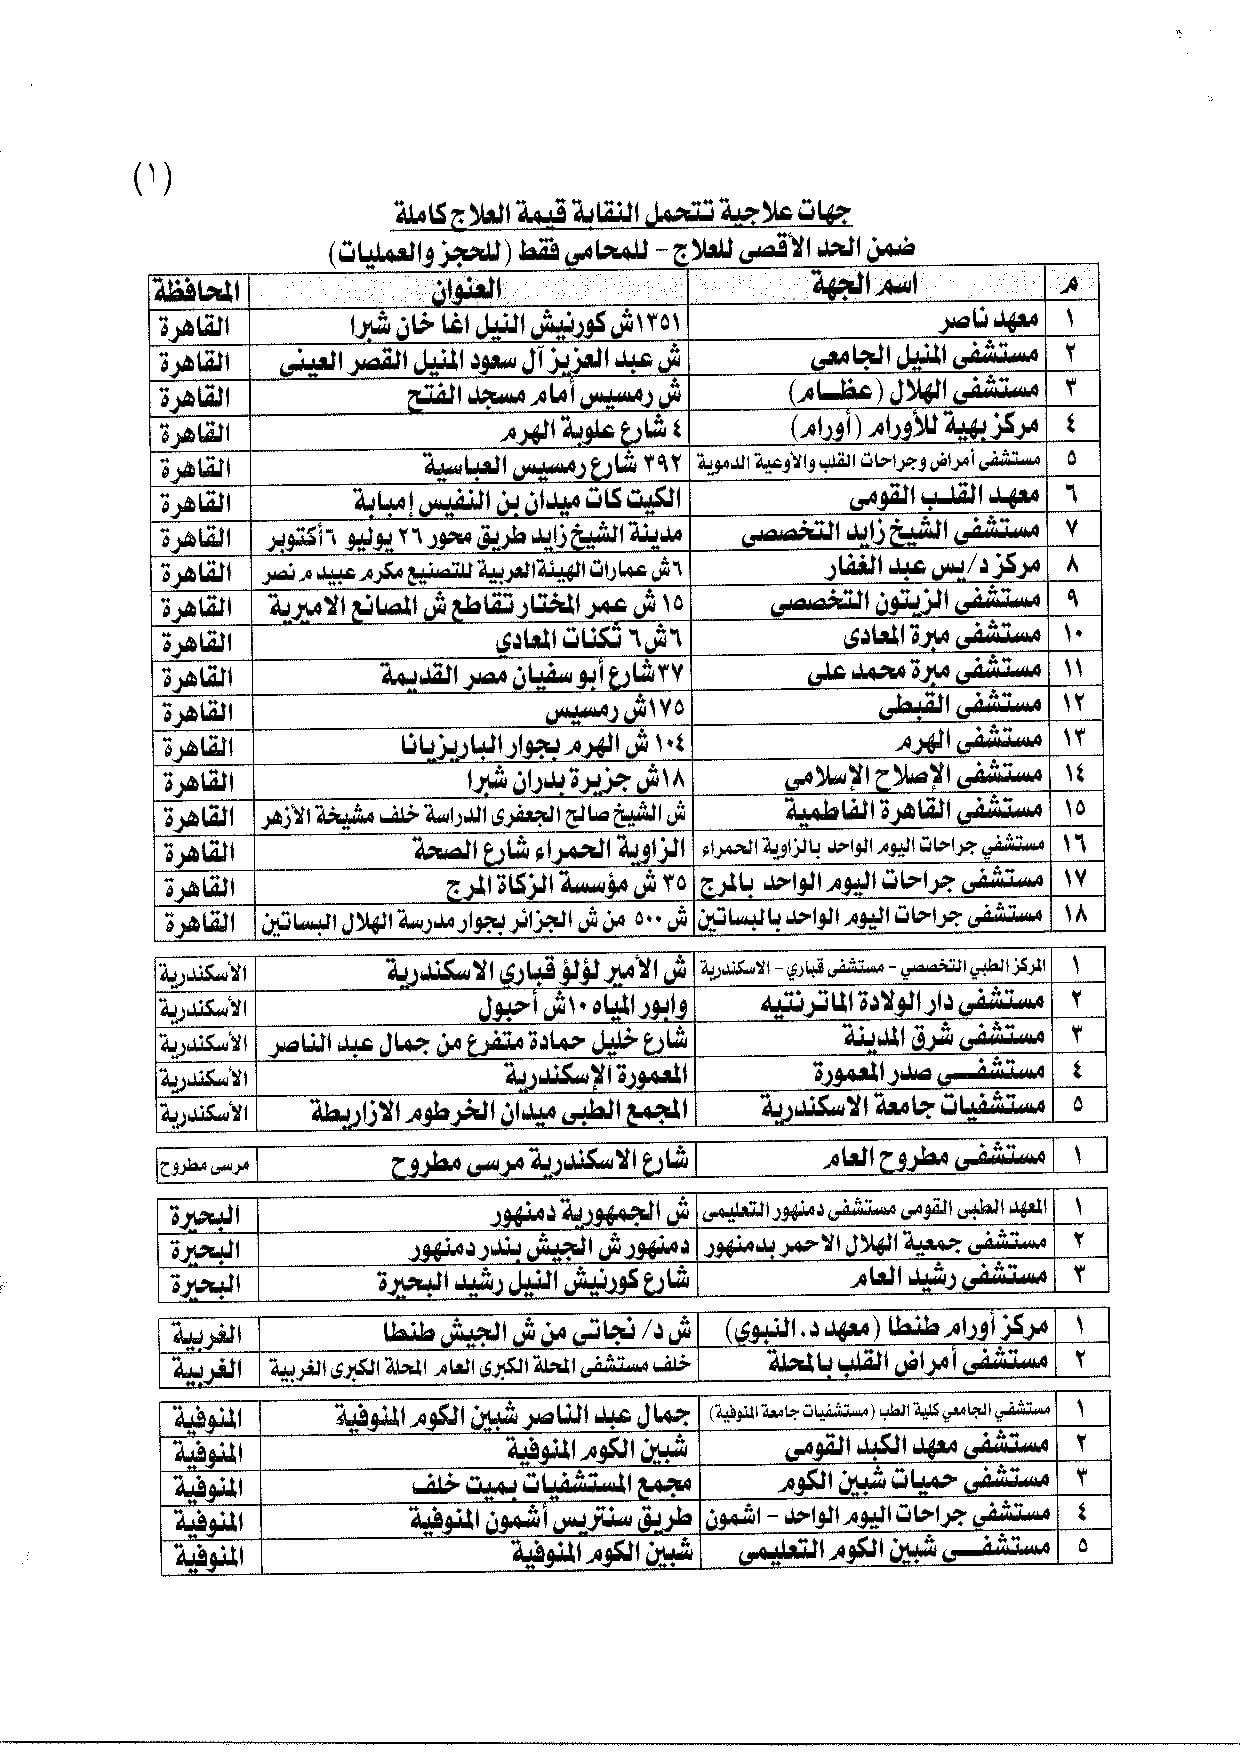 (١)
جهات علاجية تتحمل النقابة قيمة العلاج كاملة
ضمن الحد الأقصى للعلاج - للمحامي فقط (للحجز والعمليات)
م اسم الجهة العنوان المحافظة
١ معهد ناصر ١٣٥١ش كورنيش النيل اغا خان شبرا القاهرة
٢ مستشفى المنيل الجامعى ش عبد العزيز آل سعود المنيل القصر العينى القاهرة
٣ مستشفى الهلال (عظام) ش رمسيس أمام مسجد الفتح القاهرة
٤ مركز بهية للأورام (أورام) ٤ شارع علوبة الهرم القاهرة
٥ مستشفى أمراض وجراحات القلب والأوعية الدموية ٣٩٢ شارع رمسيس العباسية القاهرة
٦ معهد القلب القومى الكيت كات ميدان بن النفيس إمبابة القاهرة
٧ مستشفى الشيخ زايد التخصصى مدينة الشيخ زايد طريق محور ٢٦ يوليو ٦أكتوبر القاهرة
٨ مركز د/يس عبد الغفار ٦ش عمارات الهيئة العربية للتصنيع مكرم عبيد م نصر القاهرة
٩ مستشفى الزيتون التخصصى ١٥ ش عمر المختار تقاطع ش المصانع الاميرية القاهرة
١٠ مستشفى مبرة المعادى ٦ش ٦ ثكنات المعادي القاهرة
١١ مستشفى مبرة محمد على ٣٧ شارع أبو سفيان مصر القديمة القاهرة
١٢ مستشفى القبطى ١٧٥ش رمسيس القاهرة
١٣ مستشفى الهرم ١٠٤ ش الهرم بجوار الباريزيانا القاهرة
١٤ مستشفى الإصلاح الإسلامي ١٨ش جزيرة بدران شبرا القاهرة
١٥ مستشفى القاهرة الفاطمية ش الشيخ صالح الجعفرى الدراسة خلف مشيخة الأزهر القاهرة
١٦ مستشفي جراحات اليوم الواحد بالزاوية الحمراء الزاوية الحمراء شارع الصحة القاهرة
١٧ مستشفى جراحات اليوم الواحد بالمرج ٣٥ ش مؤسسة الزكاة المرج القاهرة
١٨ مستشفى جراحات اليوم الواحد بالبساتين ش ٥٠٠ من ش الجزائر بجوار مدرسة الهلال البساتين القاهرة
١ المركز الطبي التخصصي - مستشفى قباري - الاسكندرية ش الأمير لؤلؤ قباري الاسكندرية الأسكندرية
٢ مستشفى دار الولادة الماترنتيه وابور المياه ١٠ش أحبول الأسكندرية
٣ مستشفى شرق المدينة شارع خليل حمادة متفرع من جمال عبد الناصر الأسكندرية
٤ مستشفى صدر المعمورة المعمورة الإسكندرية الأسكندرية
٥ مستشفيات جامعة الاسكندرية المجمع الطبى ميدان الخرطوم الازاريطة الأسكندرية
١ مستشفى مطروح العام شارع الاسكندرية مرسى مطروح مرسى مطروح
١ المعهد الطبى القومى مستشفى دمنهور التعليمى ش الجمهورية دمنهور البحيرة
٢ مستشفى جمعية الهلال الاحمر بدمنهور دمنهور ش الجيش بندر دمنهور البحيرة
٣ مستشفى رشيد العام شارع كورنيش النيل رشيد البحيرة البحيرة
١ مركز أورام طنطا (معهد د. النبوي) ش د/ نجاتى من ش الجيش طنطا الغربية
٢ مستشفى أمراض القلب بالمحلة خلف مستشفى المحلة الكبرى العام المحلة الكبرى الغربية الغربية
١ مستشفي الجامعي كلية الطب (مستشفيات جامعة المنوفية) جمال عبد الناصر شبين الكوم المنوفية المنوفية
٢ مستشفى معهد الكبد القومى شبين الكوم المنوفية المنوفية
٣ مستشفى حميات شبين الكوم مجمع المستشفيات بميت خلف المنوفية
٤ مستشفي جراحات اليوم الواحد - اشمون طريق سنتريس أشمون المنوفية المنوفية
٥ مستشفى شبين الكوم التعليمى شبين الكوم المنوفية المنوفية